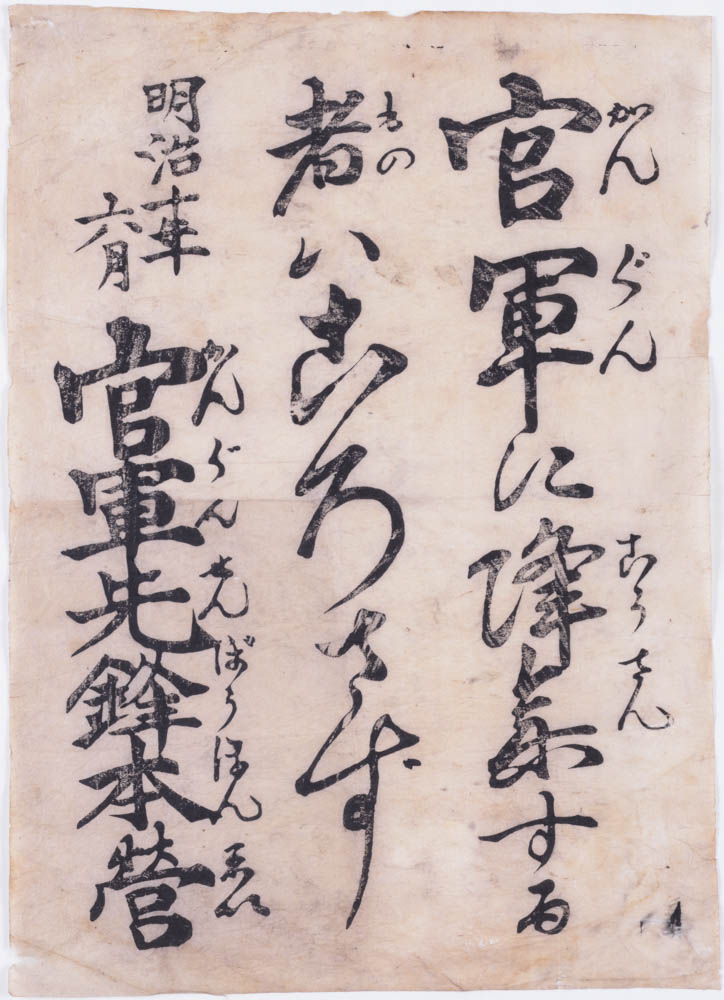 官軍に降参する
かんぐん こうさん
者ハころさず
もの
明治十年
六月
官軍先鋒本営
かんぐんせんぼうほんゑい